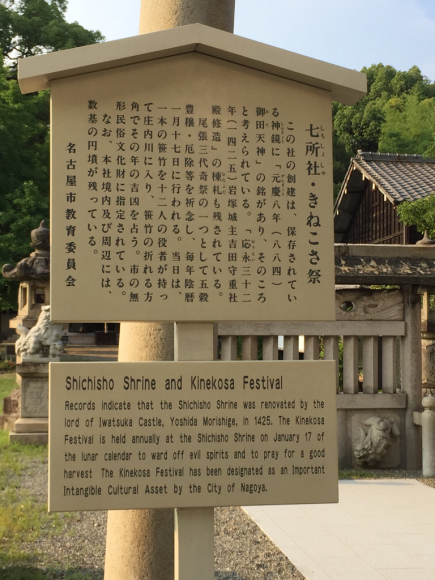 七所社・きねこさ祭
しちしょしゃ
この社の創建は、保存されてい
る神鏡に「元慶八年(八八四)
御田天神」の銘があり、そのころ
と考えられている。「応永三十二
年(一四二五)岩塚城主吉田守重社
殿修造」の棟札も残されている。
尾張三代奇祭の一つとして五穀
豊穣・厄除等を祈念し、毎年陰暦
一月十七日に行われる。当日は、
一本の笹竹を十二人の役者が持っ
て庄内川に入り、笹竹の折れる方
角でその年の吉凶を占う。市の無
形民俗文化財に指定されている。
なお、本社境内及び周辺には、
数基の円墳が残っている。
名古屋市教育委員会
Shichisho Shrine and Kinekosa Festival
Records indicate that the Shichisho Shrine was renovated by the
lord of Iwatsuka Castle, Yoshida Morishige, in 1425. The Kinekosa
Festival is held annually at the Shichisho Shrine on January 17 of
the lunar calendar to ward off evil spirits and to pray for a good
harvest The Kinekosa Festival has been designated as an Important
Intangible Cultural Asset by the City of Nagoya.